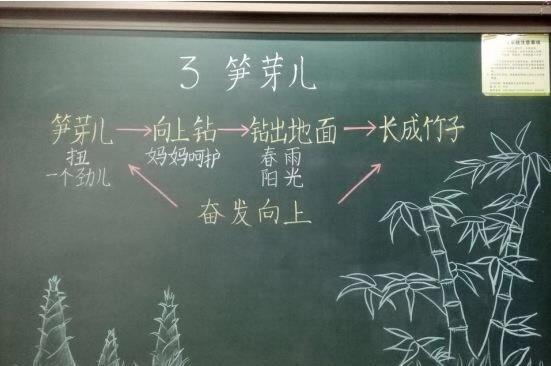 3 笋芽儿
笋芽儿 → 向上钻 → 钻出地面 → 长成竹子
扭 妈妈呵护 春雨
一个劲儿 阳光
奋发向上